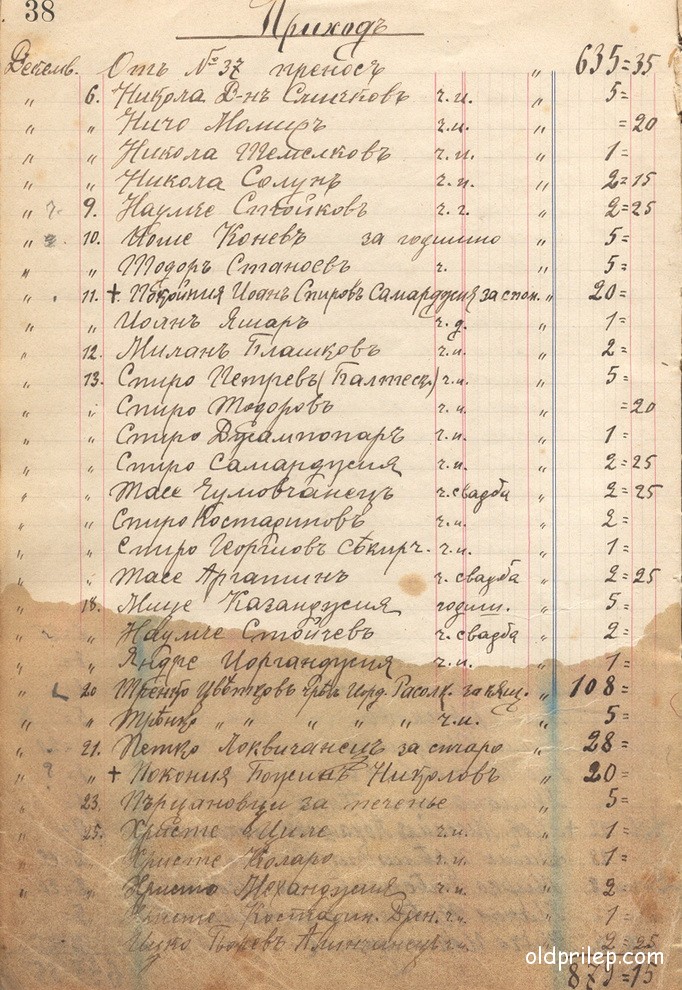 38
Приходъ
Декемв. Отъ № 37 преносъ " 635=35
" 6. Никола Д-нъ Сличковъ ч.и. " 5=
" " Ничо Момиръ ч.и. " =20
" " Никола Темелковъ ч.и. " 1=
" " Никола Солунъ ч.и. " 2=15
" 9. Наумче Стойковъ ч.г. " 2=25
" 10. Йоше Коневъ за годишно " 5=
" " Тодоръ Станоевъ ч. " 5=
" 11. † Покойния Иоанъ Спировъ Самарджия за спом. " 20=
" " Иоанъ Яшаръ ч.д. " 1=
" 12. Миланъ Плашковъ ч.и. " 2=
" 13. Спиро Петревъ ч.и. " 5=
" " Спиро Тодоровъ ч.и. =20
" " Спиро ч.и. " 1=
" " Спиро Самарджия ч.и. " 2=25
" " Тасе ч.свадба " 2=25
" " Спиро Костадиновъ ч.и. " 2=
" " Спиро Георгиовъ ч.и. " 1=
" " Тасе Аргатинъ ч. свадба " 2=25
" 18. Мице Казанджия годиш. " 5=
" " Наумче Стойчевъ ч.свадба " 2=
" " Яндре Иорганджия ч.и. " 1=
" 20 Цвѣтковъ Иорд. " 108=
" " " " " " " ч.и. " 5=
" 21. Петко Локвичанецъ за старо " 28=
" " † Покойния Николовъ " 20=
" 23. за печенье 5=
" 25. Христе Циле ч.и. " 1=
Христе Коларо ч.и. " 1=
" " Христо Механджия ч.и. " 2=
Христе Костадин. ч.и. " 1=
2=25
879=15
oldprilep.com